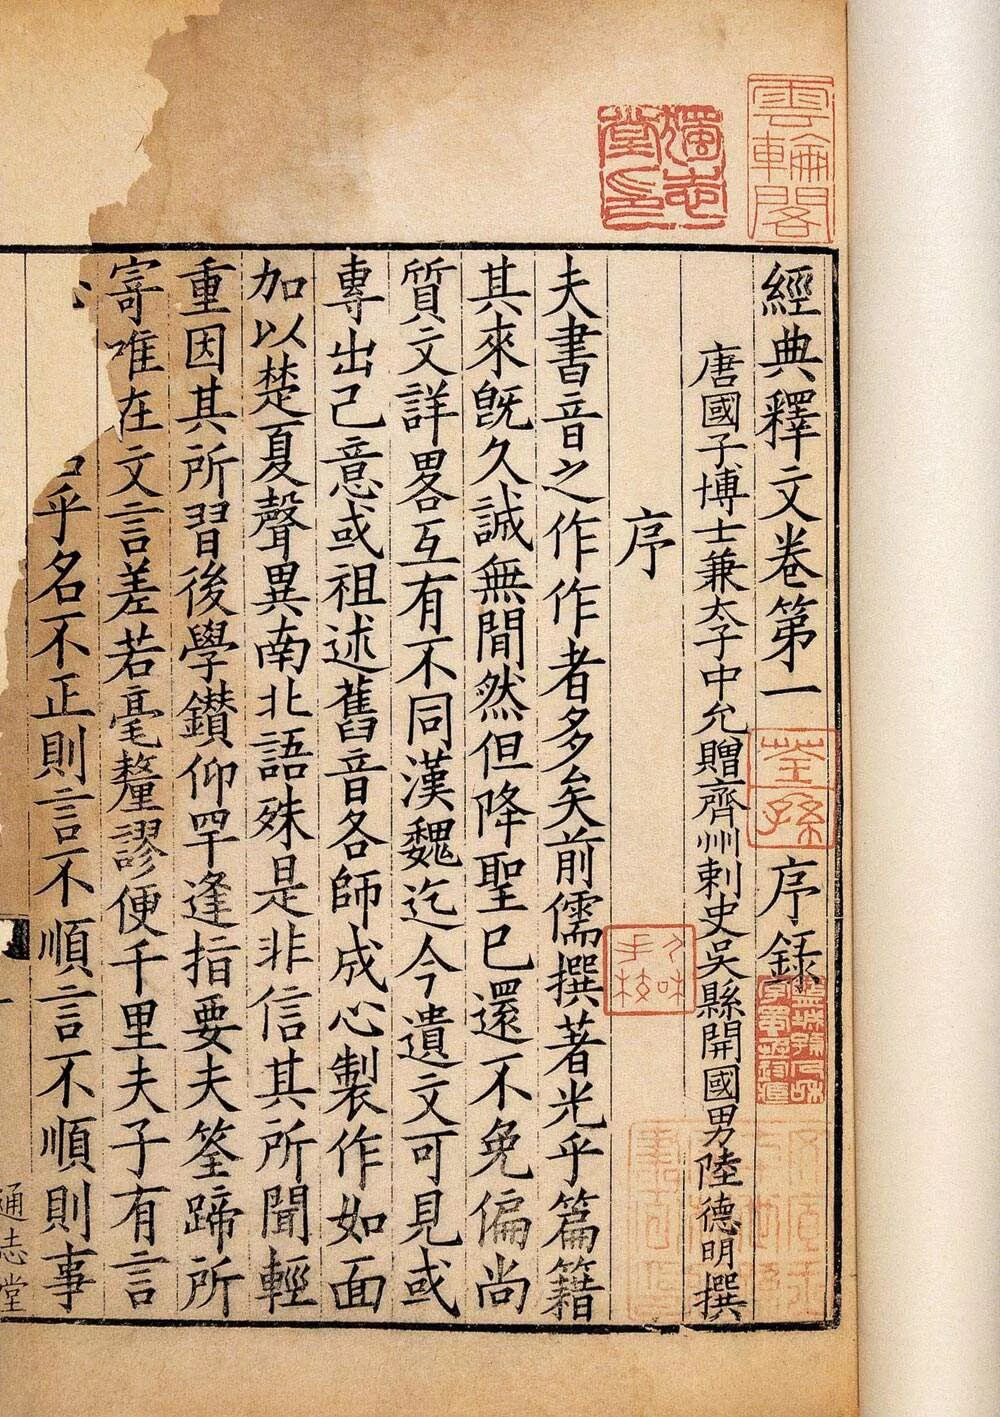 經典釋文卷第一 序録
唐國子博士兼太子中允贈齊州刺史吳縣開國男陸德明撰
序
夫書音之作作者多矣前儒撰著光乎篇籍
其來旣久誠無閒然但降聖已還不免偏尚
質文詳畧互有不同漢魏迄今遺文可見或
專出己意或祖述舊音各師成心製作如面
加以楚夏聲異南北語殊是非信其所聞輕
重因其所習後學鑽仰罕逢指要夫筌蹄所
寄唯在文言差若毫釐謬便千里夫子有言
乎名不正則言不順言不順則事
通志堂
雲輪閣
獨志堂印
荃孫